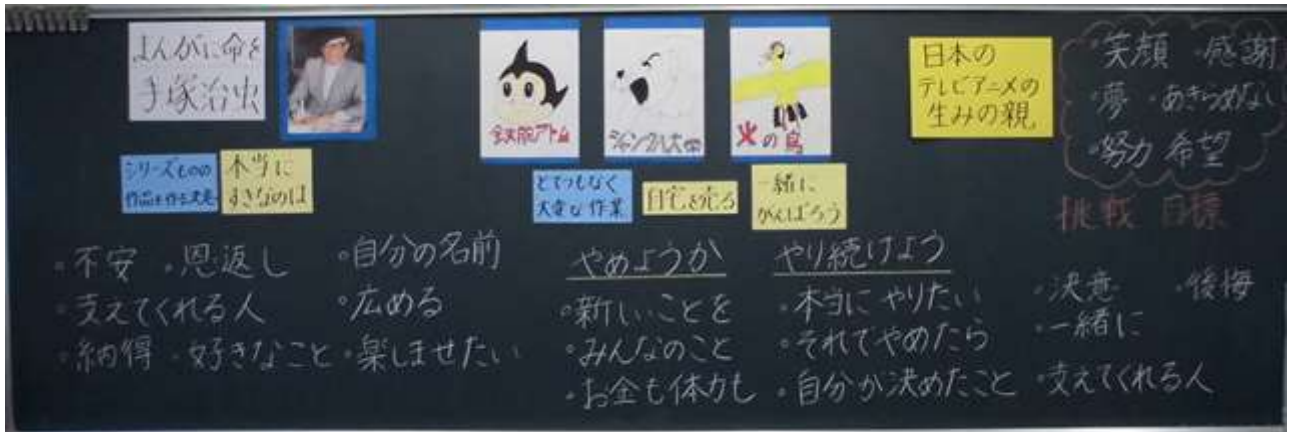 まんがに命を
手塚治虫
シリーズものの
作品を作る決意
本当に
すきなのは
鉄腕アトム
ジャングル大帝
火の鳥
とてつもなく
大変な作業
自宅を売る
一緒に
がんばろう
日本の
テレビアニメの
生みの親
・笑顔 ・感謝
・夢 ・あきらめない
・努力 希望
挑戦 目標
・不安 ・恩返し
・支えてくれる人
・納得 ・好きなこと
・自分の名前
・広める
・楽しませたい
やめようか
・新しいことを
・みんなのこと
・お金も体力も
やり続けよう
・本当にやりたい
・それでやめたら
・自分が決めたこと
・決意 ・後悔
・一緒に
・支えてくれる人